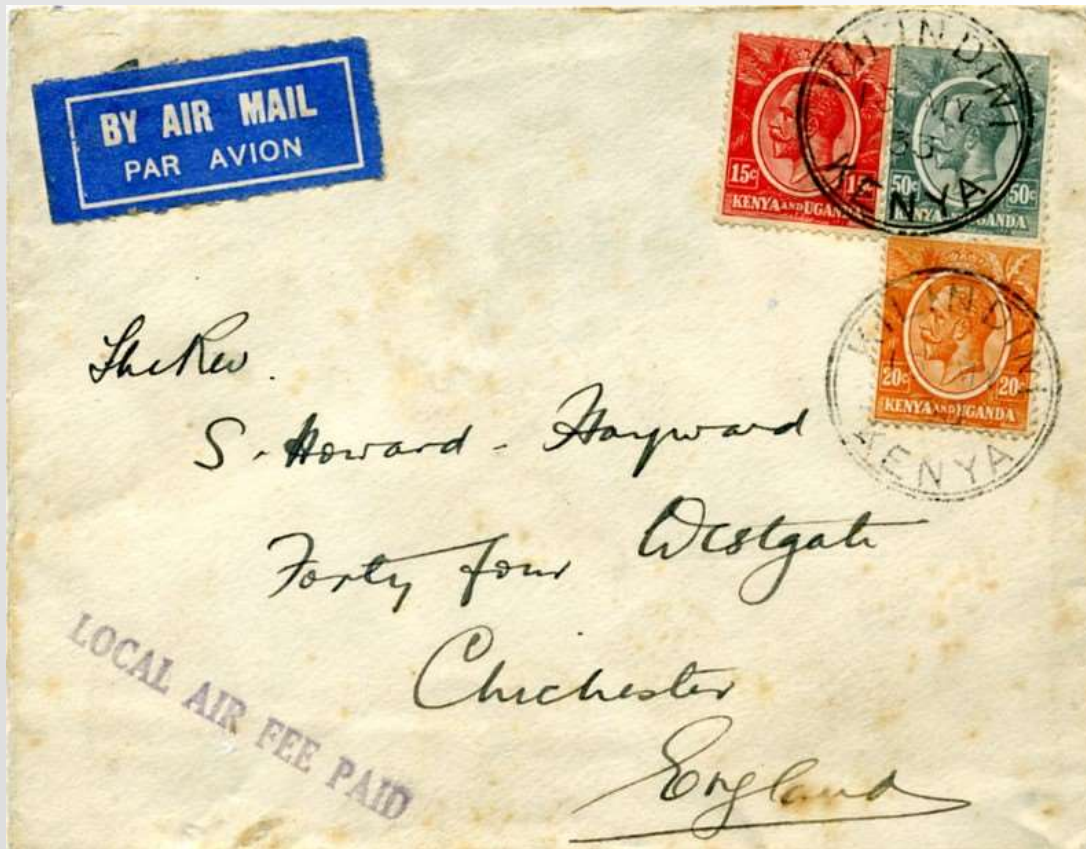 BY AIR MAIL
PAR AVION
15c 15c
KENYA AND UGANDA
50c 50c
KENYA AND UGANDA
KILINDINI
MY
KENYA
20c 20c
KENYA AND UGANDA
KILINDINI
KENYA
The Rev.
S. Howard - Hayward
Forty four Westgate
Chichester
England
LOCAL AIR FEE PAID